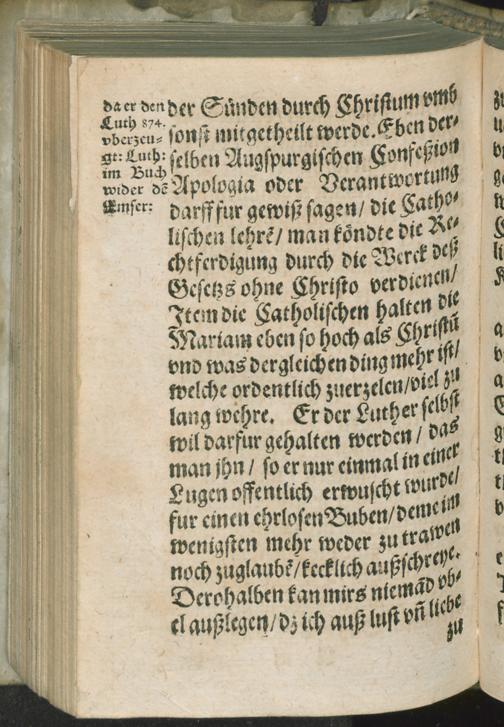 da er den
Luth 874.
vberzeu-
gt: Luth:
im Buch
wider dē
Emser:
der Sünden durch Christum vmb
sonst mitgetheilt werde. Eben der-
selben Augspurgischen Confeßion
Apologia oder Verantwortung
darff fur gewiß sagen/ die Catho-
lischen lehrē/ man köndte die Re-
chtferdigung durch die Werck deß
Gesetzs ohne Christo verdienen/
Item die Catholischen halten die
Mariam eben so hoch als Christū
vnd was dergleichen ding mehr ist/
welche ordentlich zuerzelen/viel zu
lang wehre. Er der Luther selbst
wil darfur gehalten werden / das
man jhn / so er nur einmal in einer
Lugen offentlich erwuscht wurde/
fur einen ehrlosen Buben/ deme im
wenigsten mehr weder zu trawen
noch zuglaubē/kecklich außschreye.
Derohalben kan mirs niemād vb-
el außlegen/ dz ich auß lust vñ liebe
zu